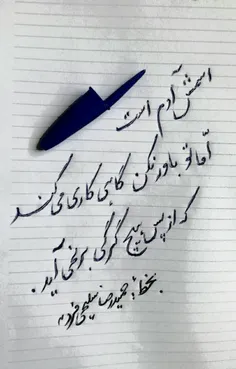 اسمش آدم است
امّا تو باور نکن گاهی کاری می‌کند
که از پس هیچ گرگی بر نمی‌آید.
بخط: حمیدرضا سلیمی فرد